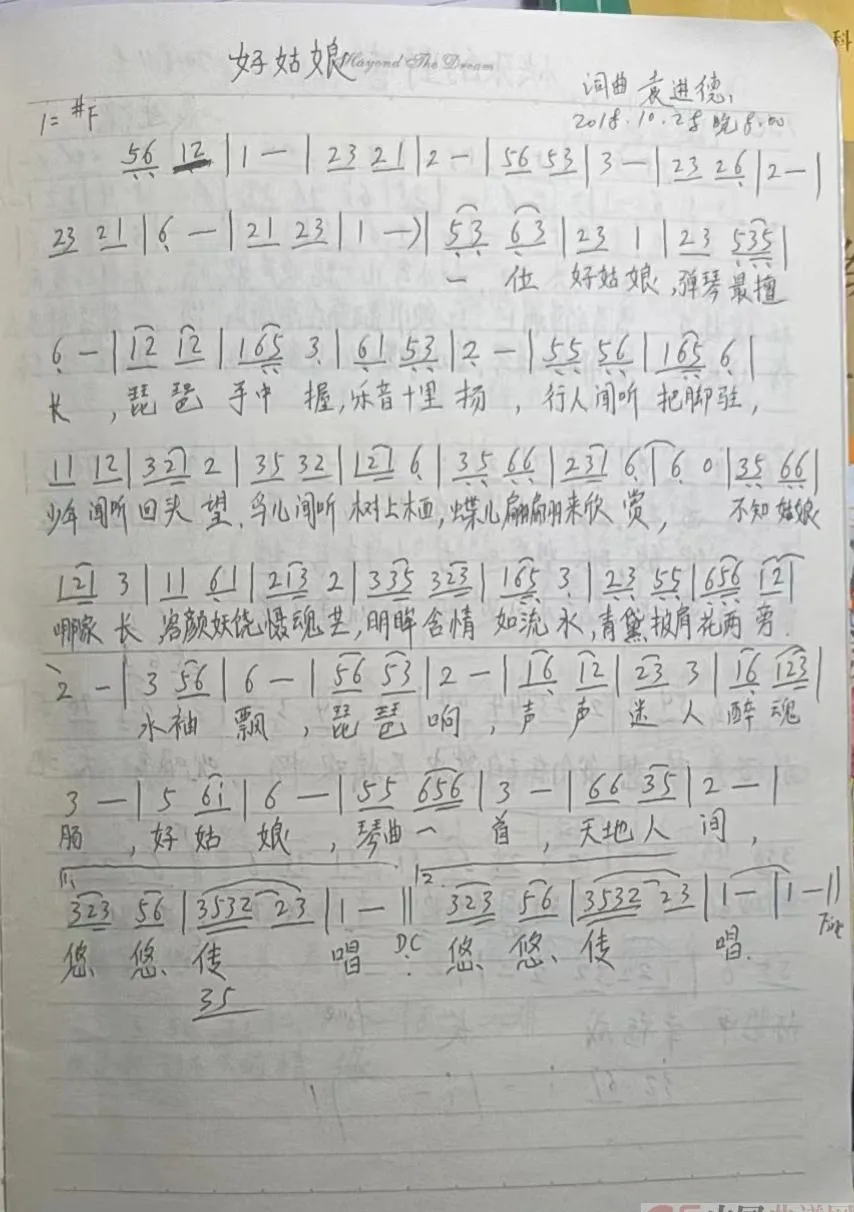 好姑娘
Beyond The Dream
词曲 袁进德
1=#F
2018.10.28晚8:00
56 12 | 1 — | 23 21 | 2 — | 56 53 | 3 — | 23 26 | 2 — |
23 21 | 6 — | 21 23 | 1 —) | 53 63 | 23 1 | 23 535 |
一 位 好姑娘,弹琴最擅
6 — | 12 12 | 165 3 | 61 53 | 2 — | 55 56 | 165 6 |
长,琵琶 手中 握,乐音十里 扬,行人闻听 把脚驻,
11 12 | 321 2 | 35 32 | 121 6 | 35 66 | 231 6 | 6 0 | 35 66 |
少年闻听回头 望,鸟儿闻听 树上栖,蝶儿翩翩来欣 赏, 不知姑娘
121 3 | 11 61 | 213 2 | 335 323 | 165 3 | 23 55 | 656 121 |
哪家 长,容颜妖娆慑魂芒,明眸含情 如流 水,青黛披肩花两 旁.
2 — | 3 56 | 6 — | 56 53 | 2 — | 16 12 | 23 3 | 16 123 |
水袖 飘,琵琶 响,声声 迷人 醉魂
3 — | 5 61 | 6 — | 55 656 | 3 — | 66 35 | 2 — |
肠,好姑 娘,琴曲一 首,天地人 间,
1. 2.
323 56 | 3532 23 | 1 — || 323 56 | 3532 23 | 1 — | 1 — ||
D.C Fine
悠 悠 传 唱. 悠 悠 传 唱.
35